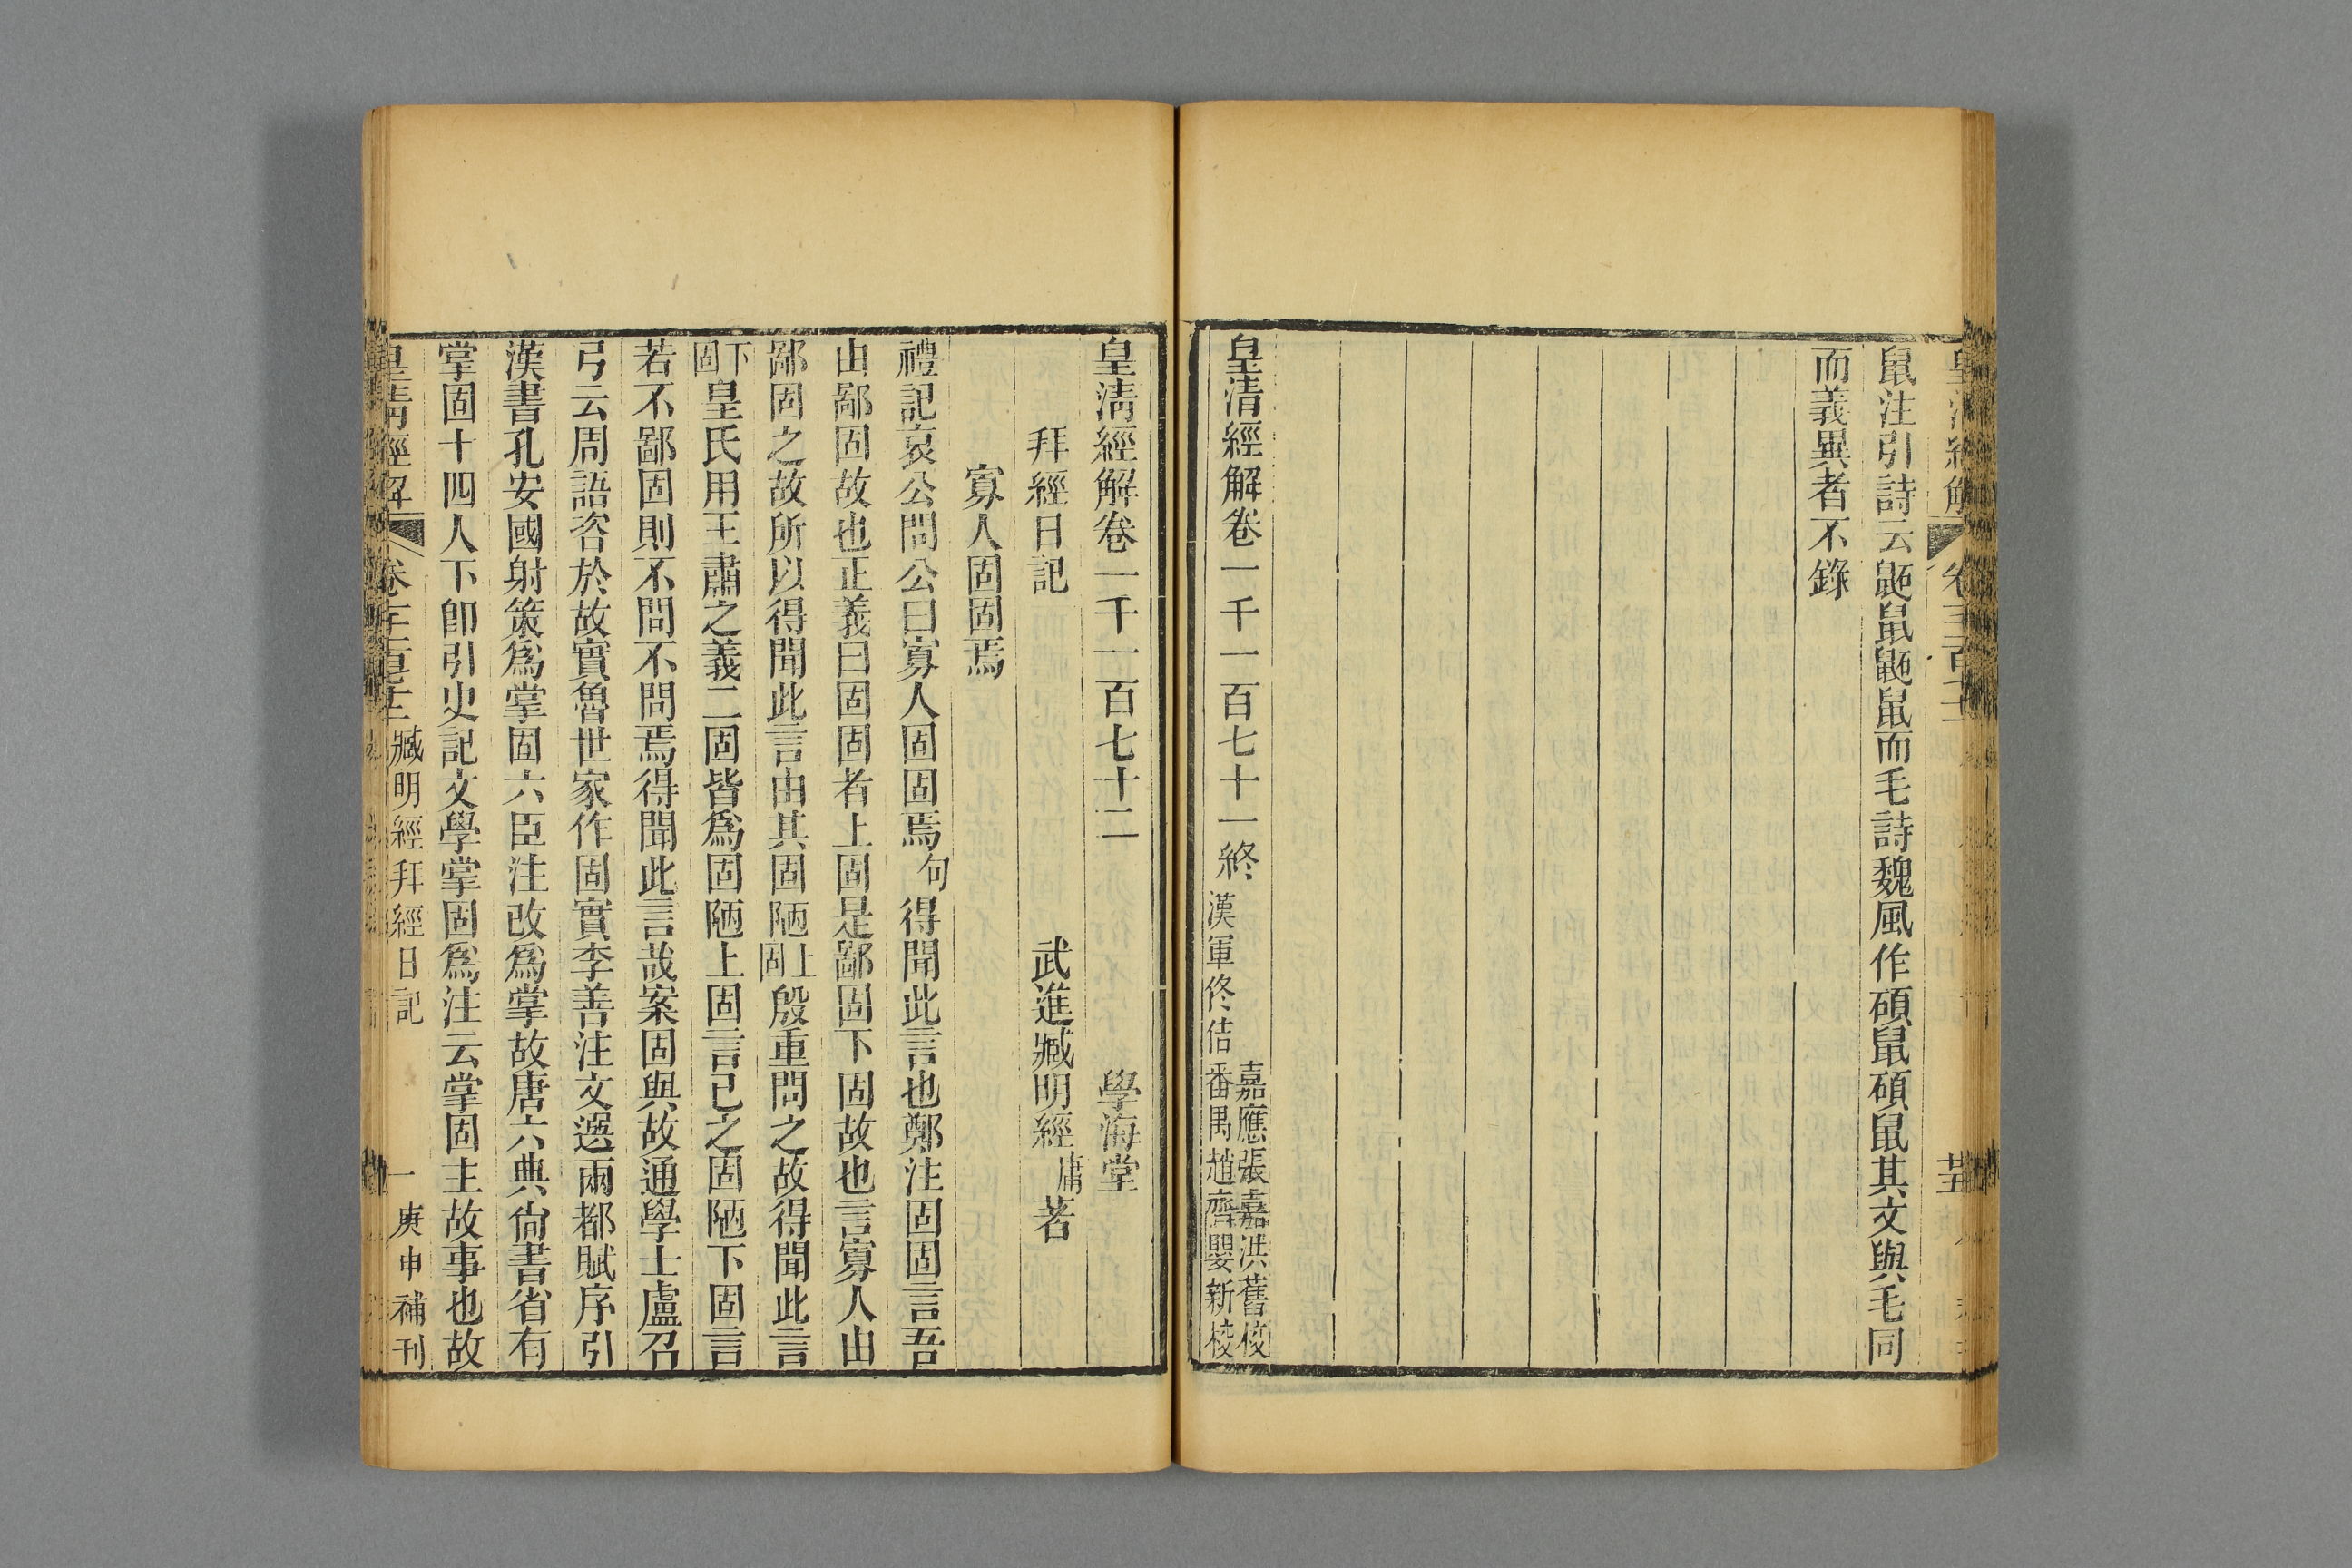 鼠注引詩云鼫鼠鼫鼠而毛詩魏風作碩鼠碩鼠其文與毛同
而義異者不錄
皇清經解卷一千一百七十一終
漢軍佟佶
嘉應張嘉洪舊校
番禺趙齊嬰新校
皇清經解卷一千一百七十二
學海堂
拜經日記
武進臧明經庸著
寡人固固焉
禮記哀公問公曰寡人固固焉句得聞此言也鄭注固固言吾
由鄙固故也正義曰固固者上固是鄙固下固故也言寡人由
鄙固之故所以得聞此言由其固陋上固殷重問之故得聞此言
下固皇氏用王肅之義二固皆爲固陋上固言己之固陋下固言
若不鄙固則不問不問焉得聞此言哉案固與故通學士盧召
弓云周語咨於故實魯世家作固實李善注文選兩都賦序引
漢書孔安國射策爲掌固六臣注改爲掌故唐六典尙書省有
掌固十四人下卽引史記文學掌固爲注云掌固主故事也故
皇清經解
臧明經拜經日記
一
庚申補刊